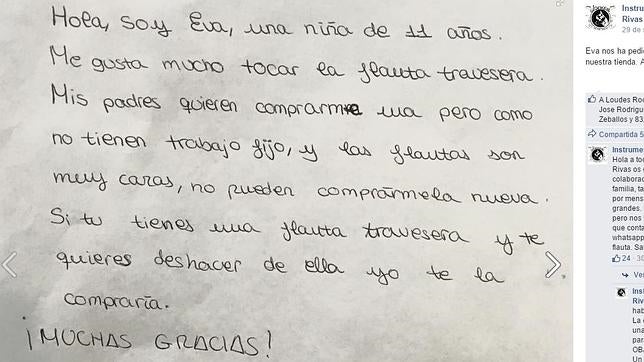 Hola, soy Eva, una niña de 11 años.
Me gusta mucho tocar la flauta travesera.
Mis padres quieren comprarme una pero como
no tienen trabajo fijo, y las flautas son
muy caras, no pueden comprármela nueva.
Si tu tienes una flauta travesera y te
quieres deshacer de ella yo te la
compraría.
¡MUCHAS GRACIAS!
Instru
Rivas
29 de s
Eva nos ha pedi
nuestra tienda. A
A Loudes Ro
Jose Rodrigu
Zeballos y 83
Compartida 5
Instrume
Hola a to
Rivas os
colaborac
familia, ta
por mens
grandes.
pero nos
que conta
whatsapp
flauta. Sa
24 · 30
Ver
Inst
Riv
hab
La
una
par
OBA
Un